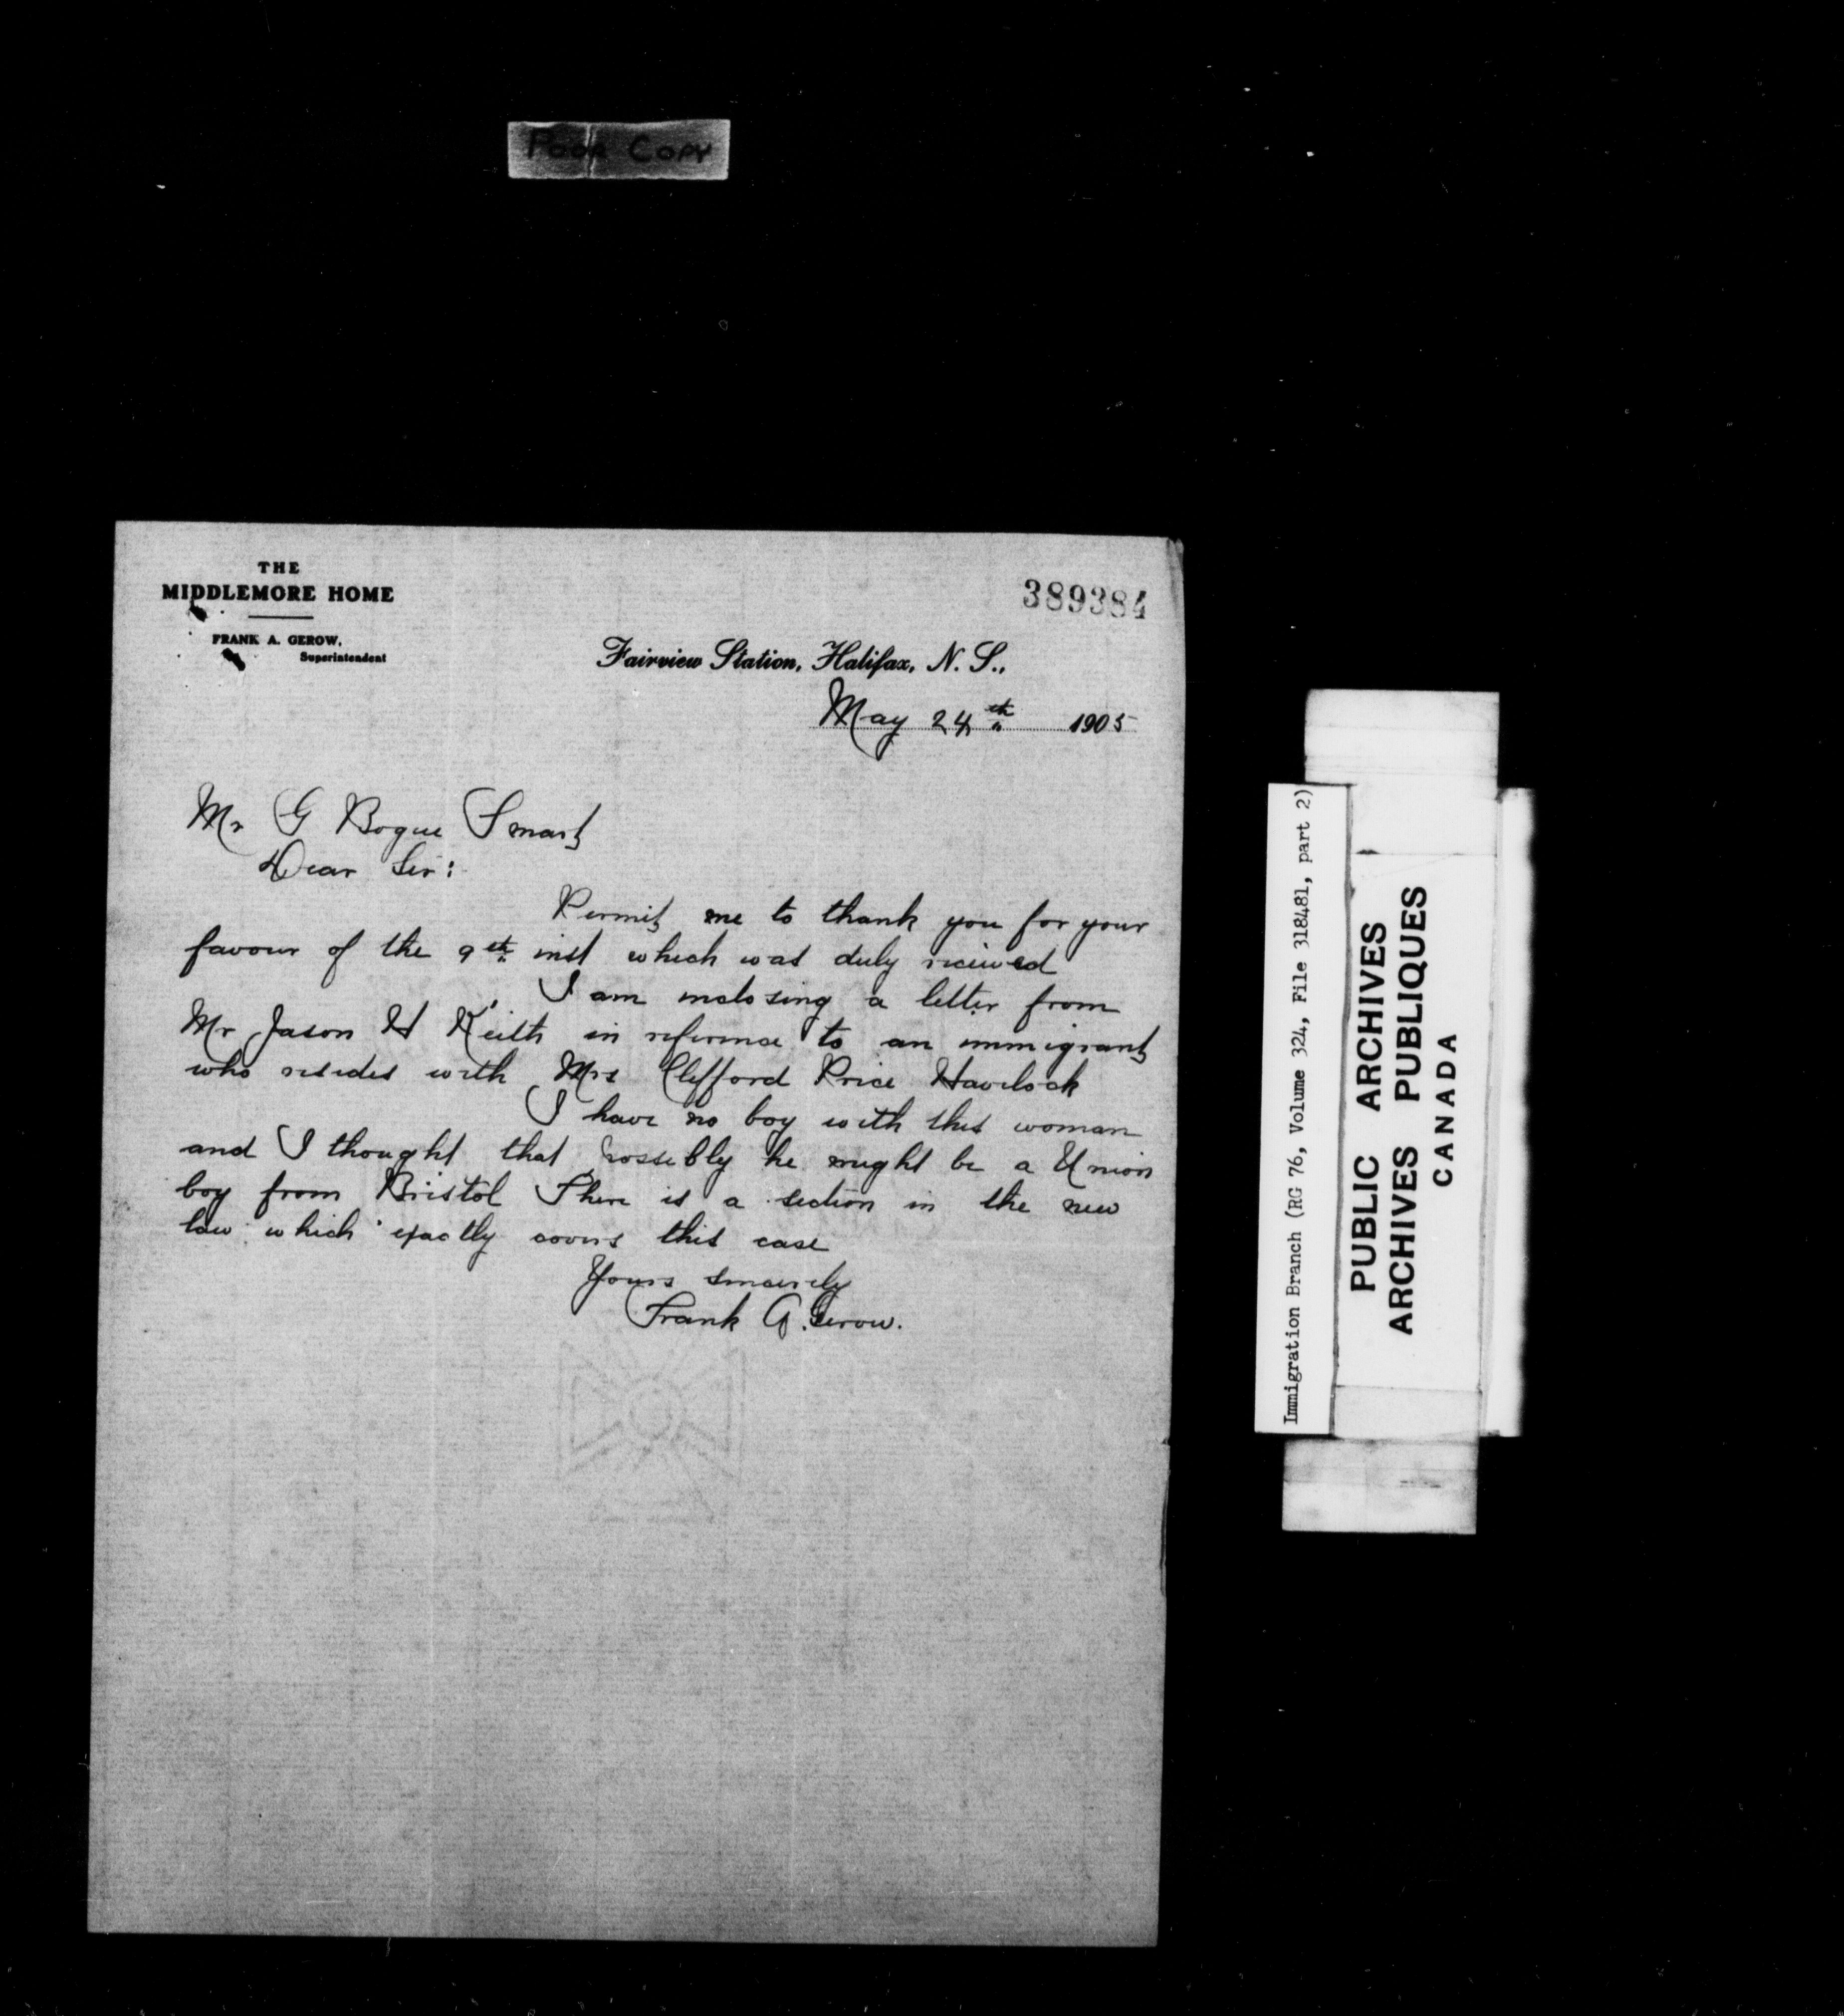 Poor Copy
THE
MIDDLEMORE HOME
FRANK A. GEROW,
Superintendent
389384
Fairview Station, Halifax, N. S.,
May 24th 1905
Mr G Bogue Smart
Dear Sir:
Permit me to thank you for your
favour of the 9th inst which was duly recieved
I am inclosing a letter from
Mr Jason H Keith in reference to an immigrant
who resides with Mrs Clifford Price Havelock
I have no boy with this woman
and I thought that possibly he might be a Union
boy from Bristol There is a section in the new
law which exactly covers this case
Yours sincerely
Frank A. Gerow.
Immigration Branch (RG 76, Volume 324, File 318481, part 2)
PUBLIC ARCHIVES
ARCHIVES PUBLIQUES
CANADA